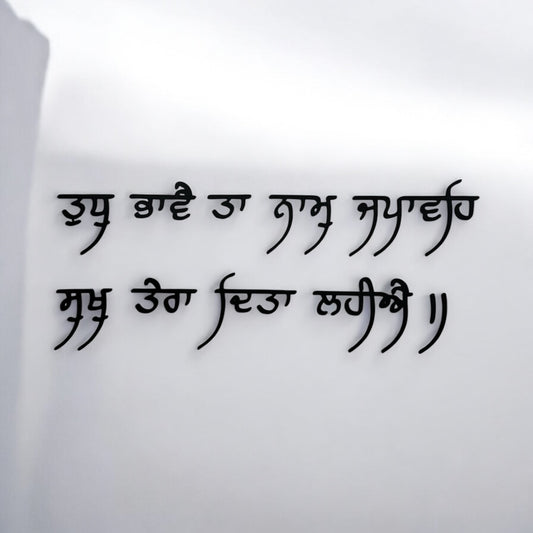 ਤੁਧੁ ਭਾਵੈ ਤਾ ਨਾਮੁ ਜਪਾਵਹਿ
ਸੁਖੁ ਤੇਰਾ ਦਿਤਾ ਲਹੀਐ ॥